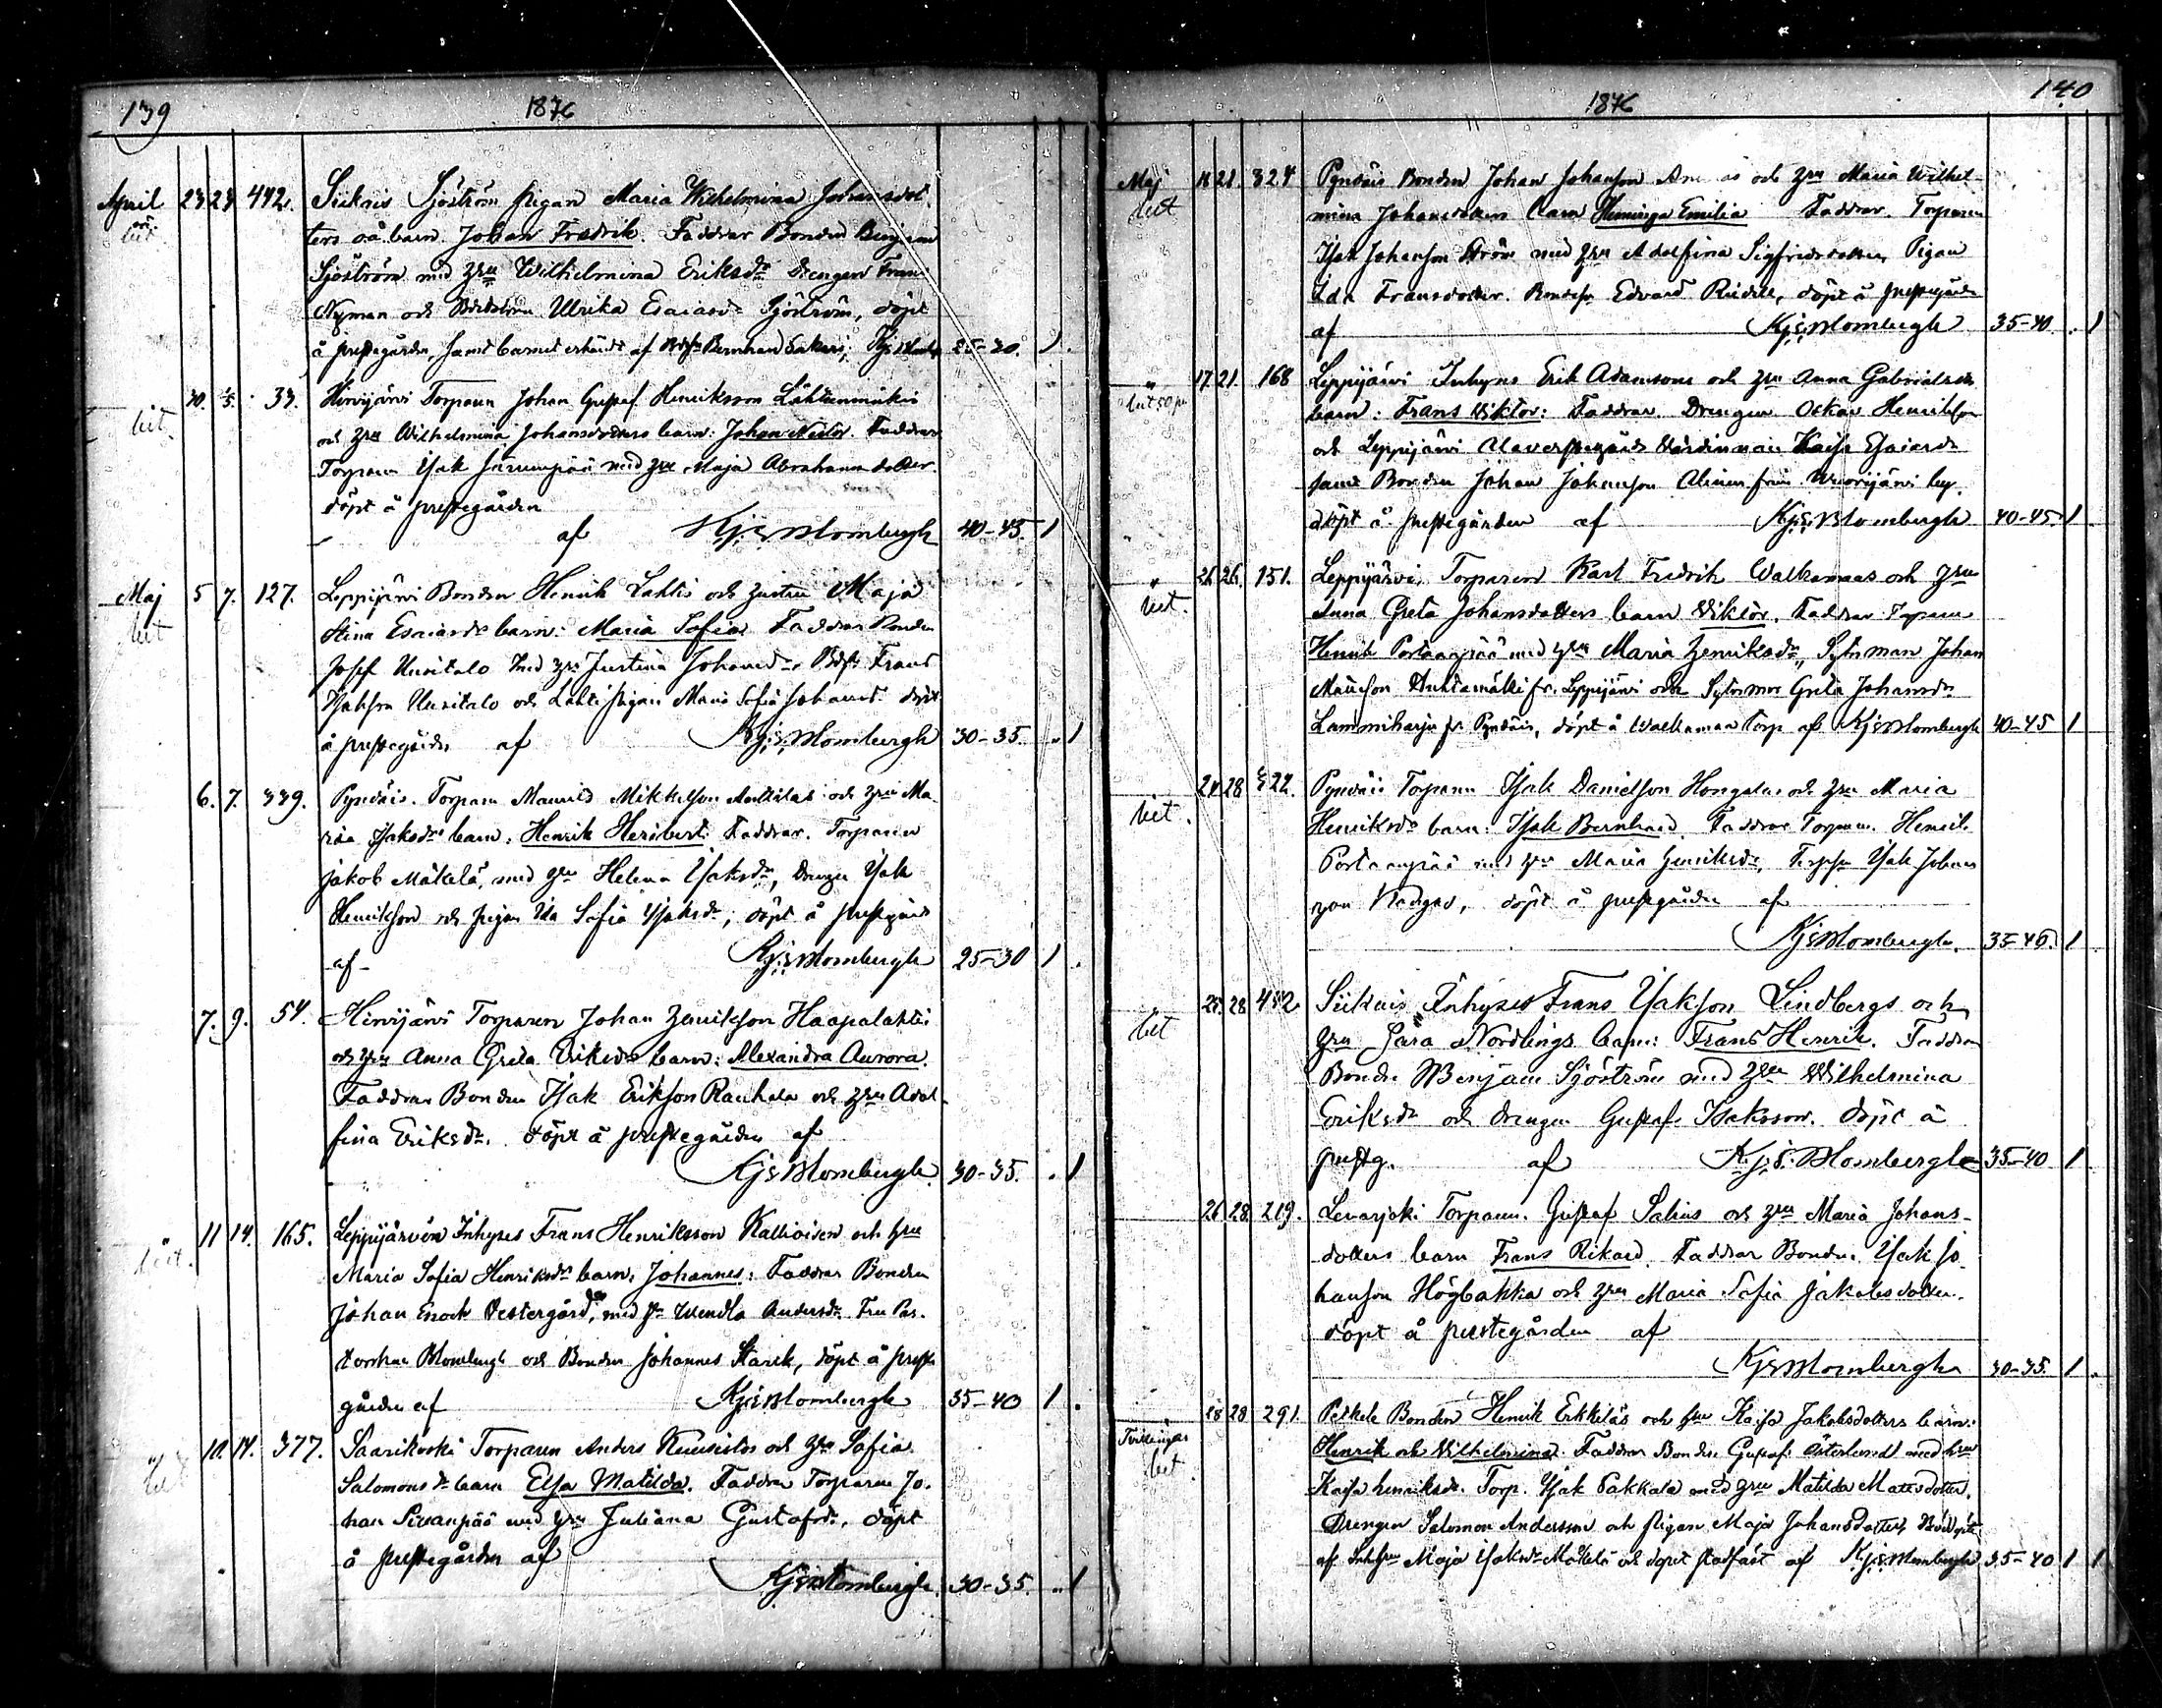 139
1876
April 23 23 442. Siikais Sjöström Pigan Maria Wilhelmina Johansdot-
oä bet ters oä. barn Johan Fredrik. Faddrar Bonden Benjam
Sjöström med Hru Wilhelmina Eriksdr Drengen Frans
Nyman och Ulrika Esaiasd. Sjöström, döpt
å prestegården, samt barnet erkändt af Bernhard 25-30. 1.
30. 1/5. 33. Hirvijärvi Torparen Johan Gustaf Henriksson Lähteenmäkis
bet. och Hru Wilhelmina Johansdotters barn: Johan Nestor. Faddrar
Torparen Isak Järvenpää med Hru Maja Abrahams dotter.
döpt å prestegården
af Kjs Blombergh 40-45. 1
Maj 5 7. 127. Leppijärvi Bonden Henrik Lahtis och hustru Maja
bet Stina Esaiasdr barn: Maria Sofia. Faddrar Bonden
Josef Uusitalo med Hru Justina Johansdr, Bdsn Frans
Isaksson Uusitalo och Lahti pigan Maria Sofia Johansd. döpt
å prestegården af Kjs Blombergh 30-35. " 1
6. 7. 339. Pyndäis. Torparen Maurits Mikkelson Anttilas och Hru Ma-
ria Isaksdrs barn. Henrik Heribert. Faddrar. Torparen
Jakob Mäkelä, med Hru Helena Isaksdr, Drengen Isak
Henrikson och pigan Ida Sofia Isaksdr, döpt å prestgård
af Kjs Blombergh 25-30 1 .
7. 9. 54. Hirvijärvi Torparen Johan Henrikson Haapalahtis
och Hru Anna Greta Eriksdrs barn: Alexandra Aurora.
Faddrar Bonden Isak Erikson Rauhala och Hru Adol-
fina Eriksdr. döpt å prestegården af
Kjs Blombergh 30-35. . 1
11 14. 165. Leppijärvi Inhyses Frans Henriksson Kallioisen och Hru
bet. Maria Sofia Henriksdrs barn, Johannes: Faddrar Bonden
Johan Enock Vestergård, med Hr Wendla Andersdr. Fru Pas-
torskan Blombergh och Bonden Johannes Starck, döpt å preste
gården af Kjs Blombergh 35-40 1 .
10. 14. 377. Saarikoski Torparen Anders Kuusistos och Hru Sofia
bet Salomons dr barn Elsa Matilda. Faddrar Torparen Jo-
han Sivanpää med Hru Juliana Gustafsdr, döpt
å prestegården af
Kjs Blombergh. 30-35. " 1
140
1876
Maj 18 21. 324 Pyndäis Bonden Johan Johanson och Hru Maria Wilhel-
bet mina Johansdotters barn Emilia Faddrar. Torparen
Isak Johanson Ström med Hru Adolfina Sigfridsdotter, Pigan
Ida Fransdotter. Bondsn Edvard, döpt å prestegården
af Kjs Blombergh 35-40 . 1
" 17. 21. 168 Leppijärvi Inhyses Erik Adamsons och Hru Anna Gabrielsdr
bet 50 p barn: Frans Viktor: Faddrar. Drengen Oskar Henrikson
och Leppijärvi Värdinnan Kajsa Esaiasdr
samt Bonden Johan Johanson från Vuorijärvi by.
döpt å prestegården af Kjs Blombergh 40-45 1
" 26 26. 151. Leppijärvi Torparen Karl Fredrik Walkamaas och Hru
bet. Anna Greta Johansdotters barn Viktor. Faddrar Torparen
Henrik Portaanpää med Hru Maria Henriksdr, Sytnman Johan
fr. Leppijärvi och Sytnmor Greta Johansdr
Lamminharju fr Pyndäis, döpt å Walkamaa Torp af Kjs Blombergh 40-45 1
24 28 322. Pyndäis Torparen Isak Danielson Hongalas och Hru Maria
bet. Henriksdr barn: Isak Bernhard. Faddrar Torparen Henrik
Portaanpää med Hru Maria Henriksdr, Torpsn Isak Johans
son, döpt å prestegården af
Kjs Blombergh. 35-40. 1
25. 28 452. Siikais Inhyses Frans Isakson Lindbergs och
bet Hru Sara Nordlings barn: Frans Henrik. Faddrar
Bonden Benjam Sjöström med Hru Wilhelmina
Eriksdr och drengen Gustaf Isaksson. döpt å
prestg. af Kjs. Blombergh 35-40 1
26 28. 219. Levasjoki Torparen. Gustaf Salins och Hru Maria Johans-
dotters barn Frans Rikard. Faddrar Bonden Isak Jo-
hanson Högbakka och Hru Maria Sofia Jakobsdotter.
döpt å prestegården af
Kjs Blombergh 30-35. 1 .
28 28 291. Peskele Bonden Henrik Erkkiläs och Hru Kajsa Jakobsdotters barn:
Tvillingar Henrik och Vilhelmina. Faddrar Bonden Gustaf Österlund med Hru
bet Kajsa Henriksdr. Torp. Isak Pakkala med Hru Matilda Matsdotter.
Drengen Salomon Andersson och Pigan Maja Johansdotter, Nöddöpte
af Maja Isaksdr Mäkelä och dopet stadfäst af Kjs Blombergh 35-40 1 1